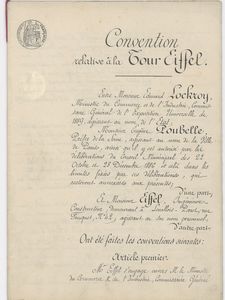 Convention
relative à la Tour Eiffel.
Entre Monsieur Edouard Lockroy,
Ministre du Commerce et de l'Industrie, Commis-
saire Général de l'Exposition Universelle de
1889, agissant au nom de l'Etat,
Monsieur Eugène Poubelle,
Préfet de la Seine, agissant au nom de la Ville
de Paris, ainsi qu'il y est autorisé par les
délibérations du Conseil Municipal des 22
Octobre et 1886 et dans les
limites fixées par ces délibérations, qui
resteront annexées aux présentes,
D'une part,
Et Monsieur Eiffel, Ingénieur-
Constructeur demeurant à Levallois-Perret, rue
Fouquet, agissant en son nom personnel
D'autre part.
Ont été faites les conventions suivantes:
Article premier
Mr Eiffel s'engage envers M. le Ministre
du Commerce et de l'Industrie, Commissaire Général